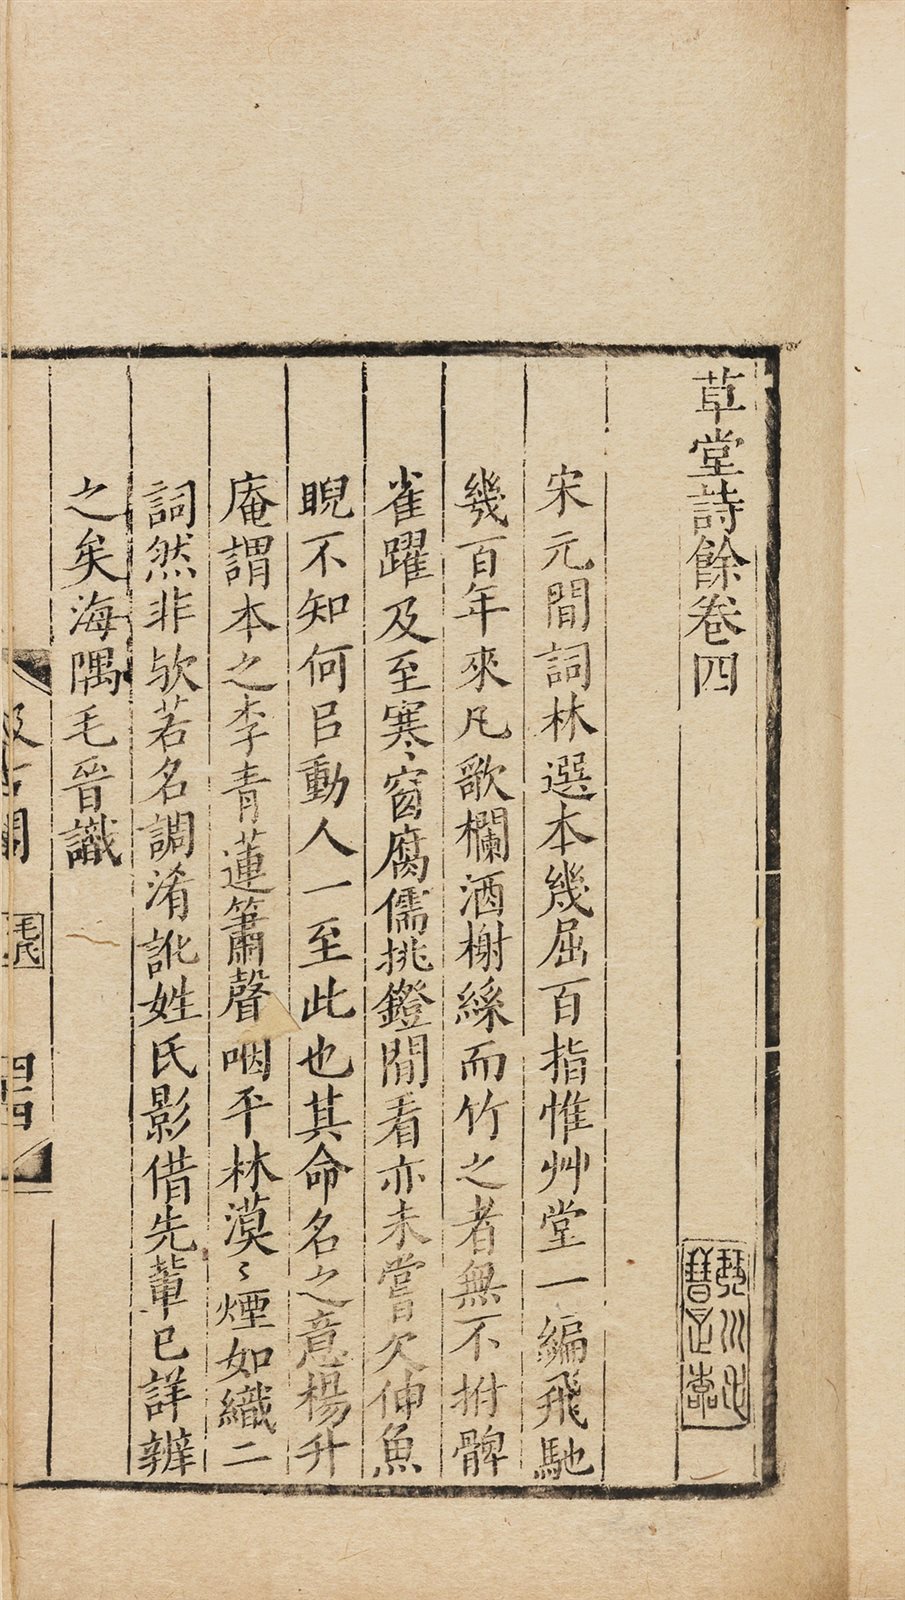 草堂詩餘卷四
宋元間詞林選本幾屈百指惟艸堂一編飛馳
幾百年來凡歌欄酒榭絲而竹之者無不拊髀
雀躍及至寒窗腐儒挑鐙閒看亦未嘗欠伸魚
睨不知何㠯動人一至此也其命名之意楊升
庵謂本之李青蓮簫聲咽平林漠〻煙如織二
詞然非歟若名調淆訛姓氏影借先輩已詳辨
之矣海隅毛晉識
汲古閣
毛氏
四
四四